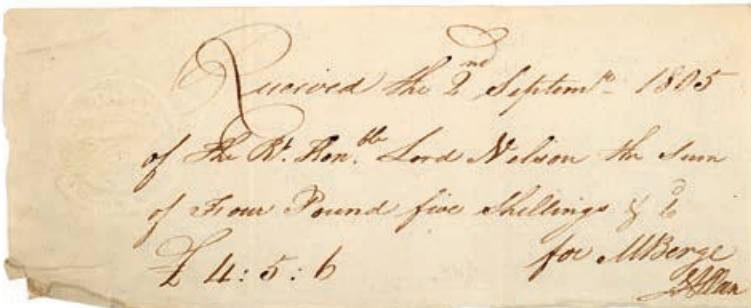 Received the 2nd Septemr 1805
of the Rt. Honble Lord Nelson the Sum
of Four Pound five Shillings & 6d
£ 4:5:6 for MBerge
JAllan